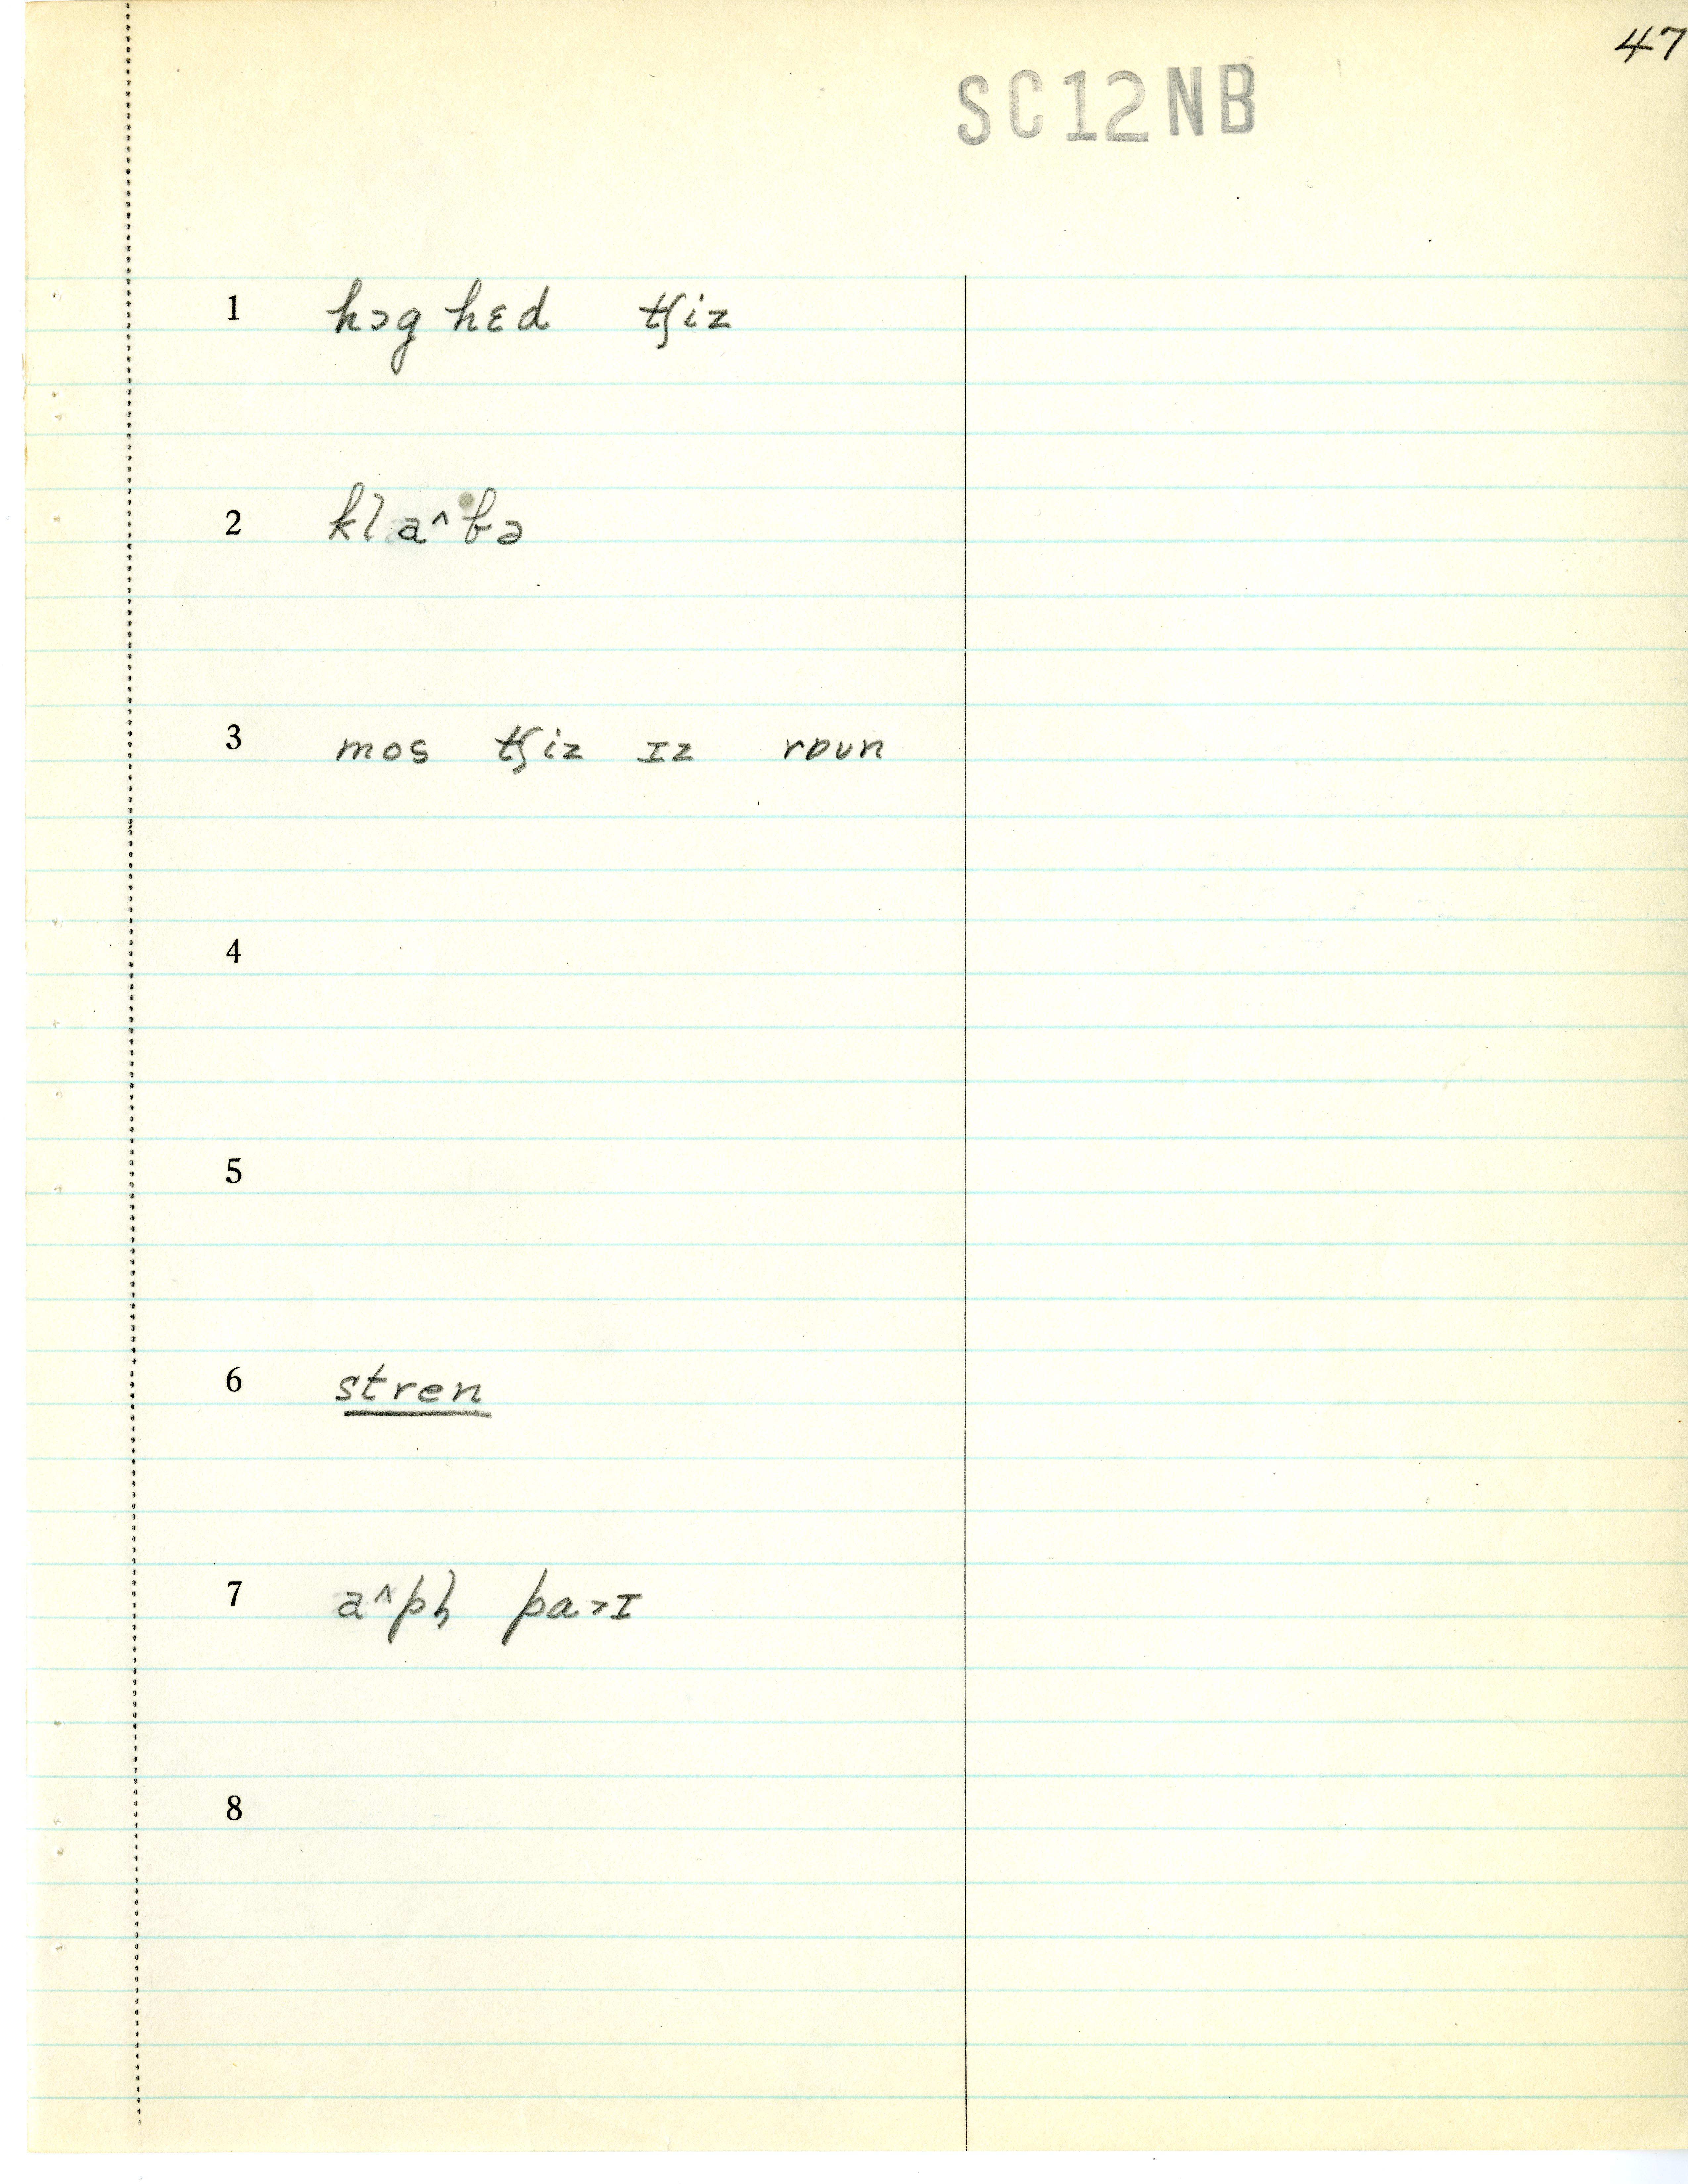 47
SC12NB
1 hɔg hɛd tʃiz
2 klaˆbə
3 mos tʃiz ɪz rɒun
4
5
6 stren
7 aˆpḷ pa˃ɪ
8